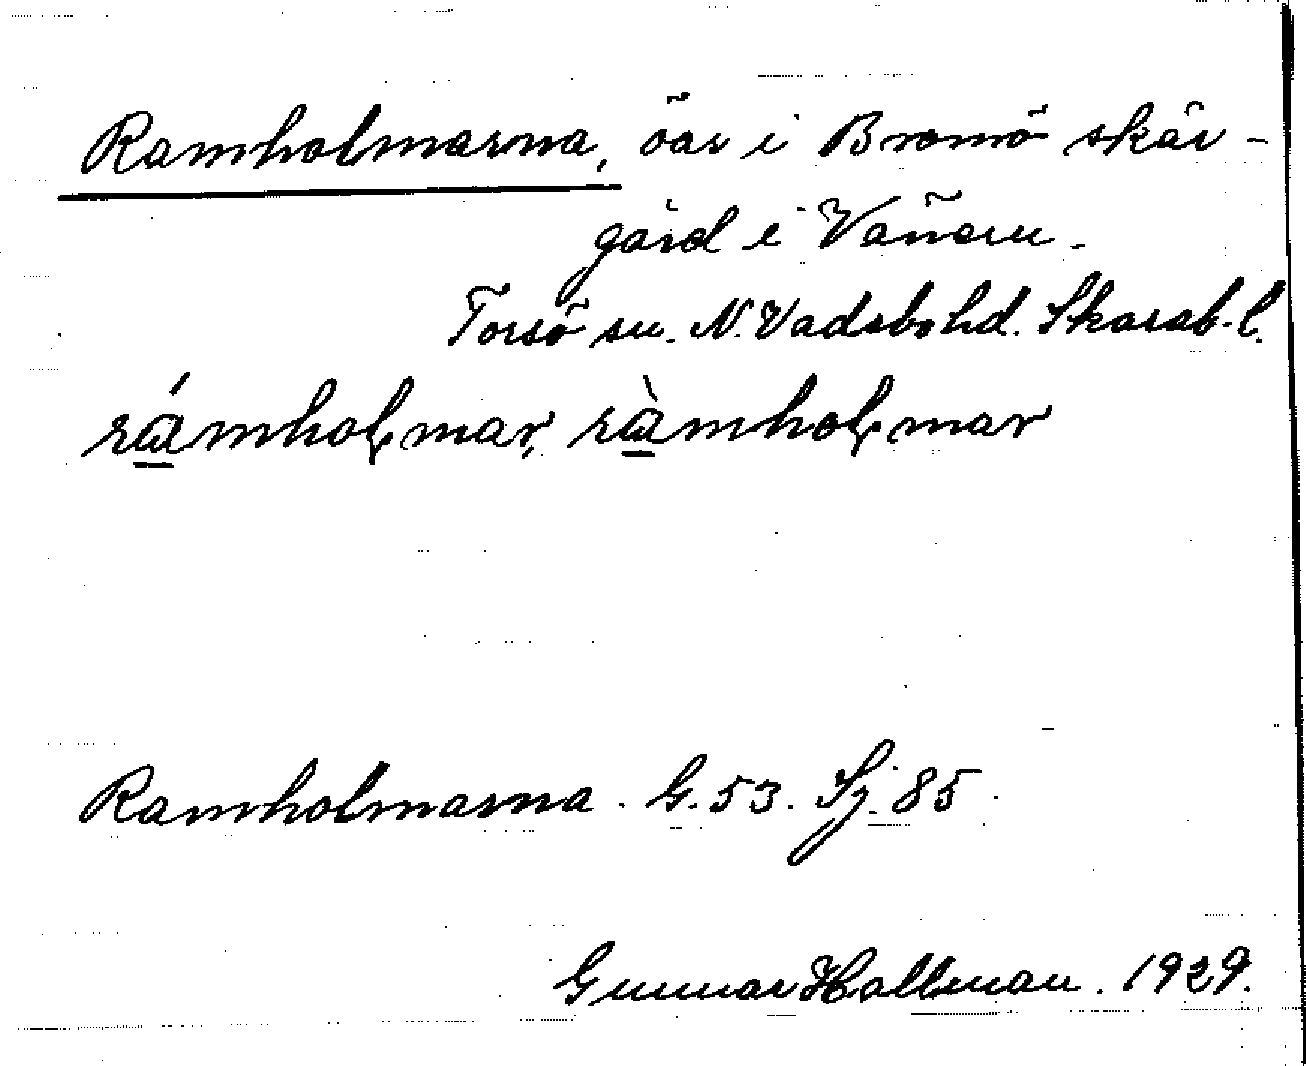 Ramholmarna, öar i Bromö skär-
gård i Vänern.
Torsö sn. N. Vadsbo hd. Skarab. l.
rámholmar, ràmholmar
Ramholmarna. G. 53. Sj. 85.
Gunnar Hallman. 1929.